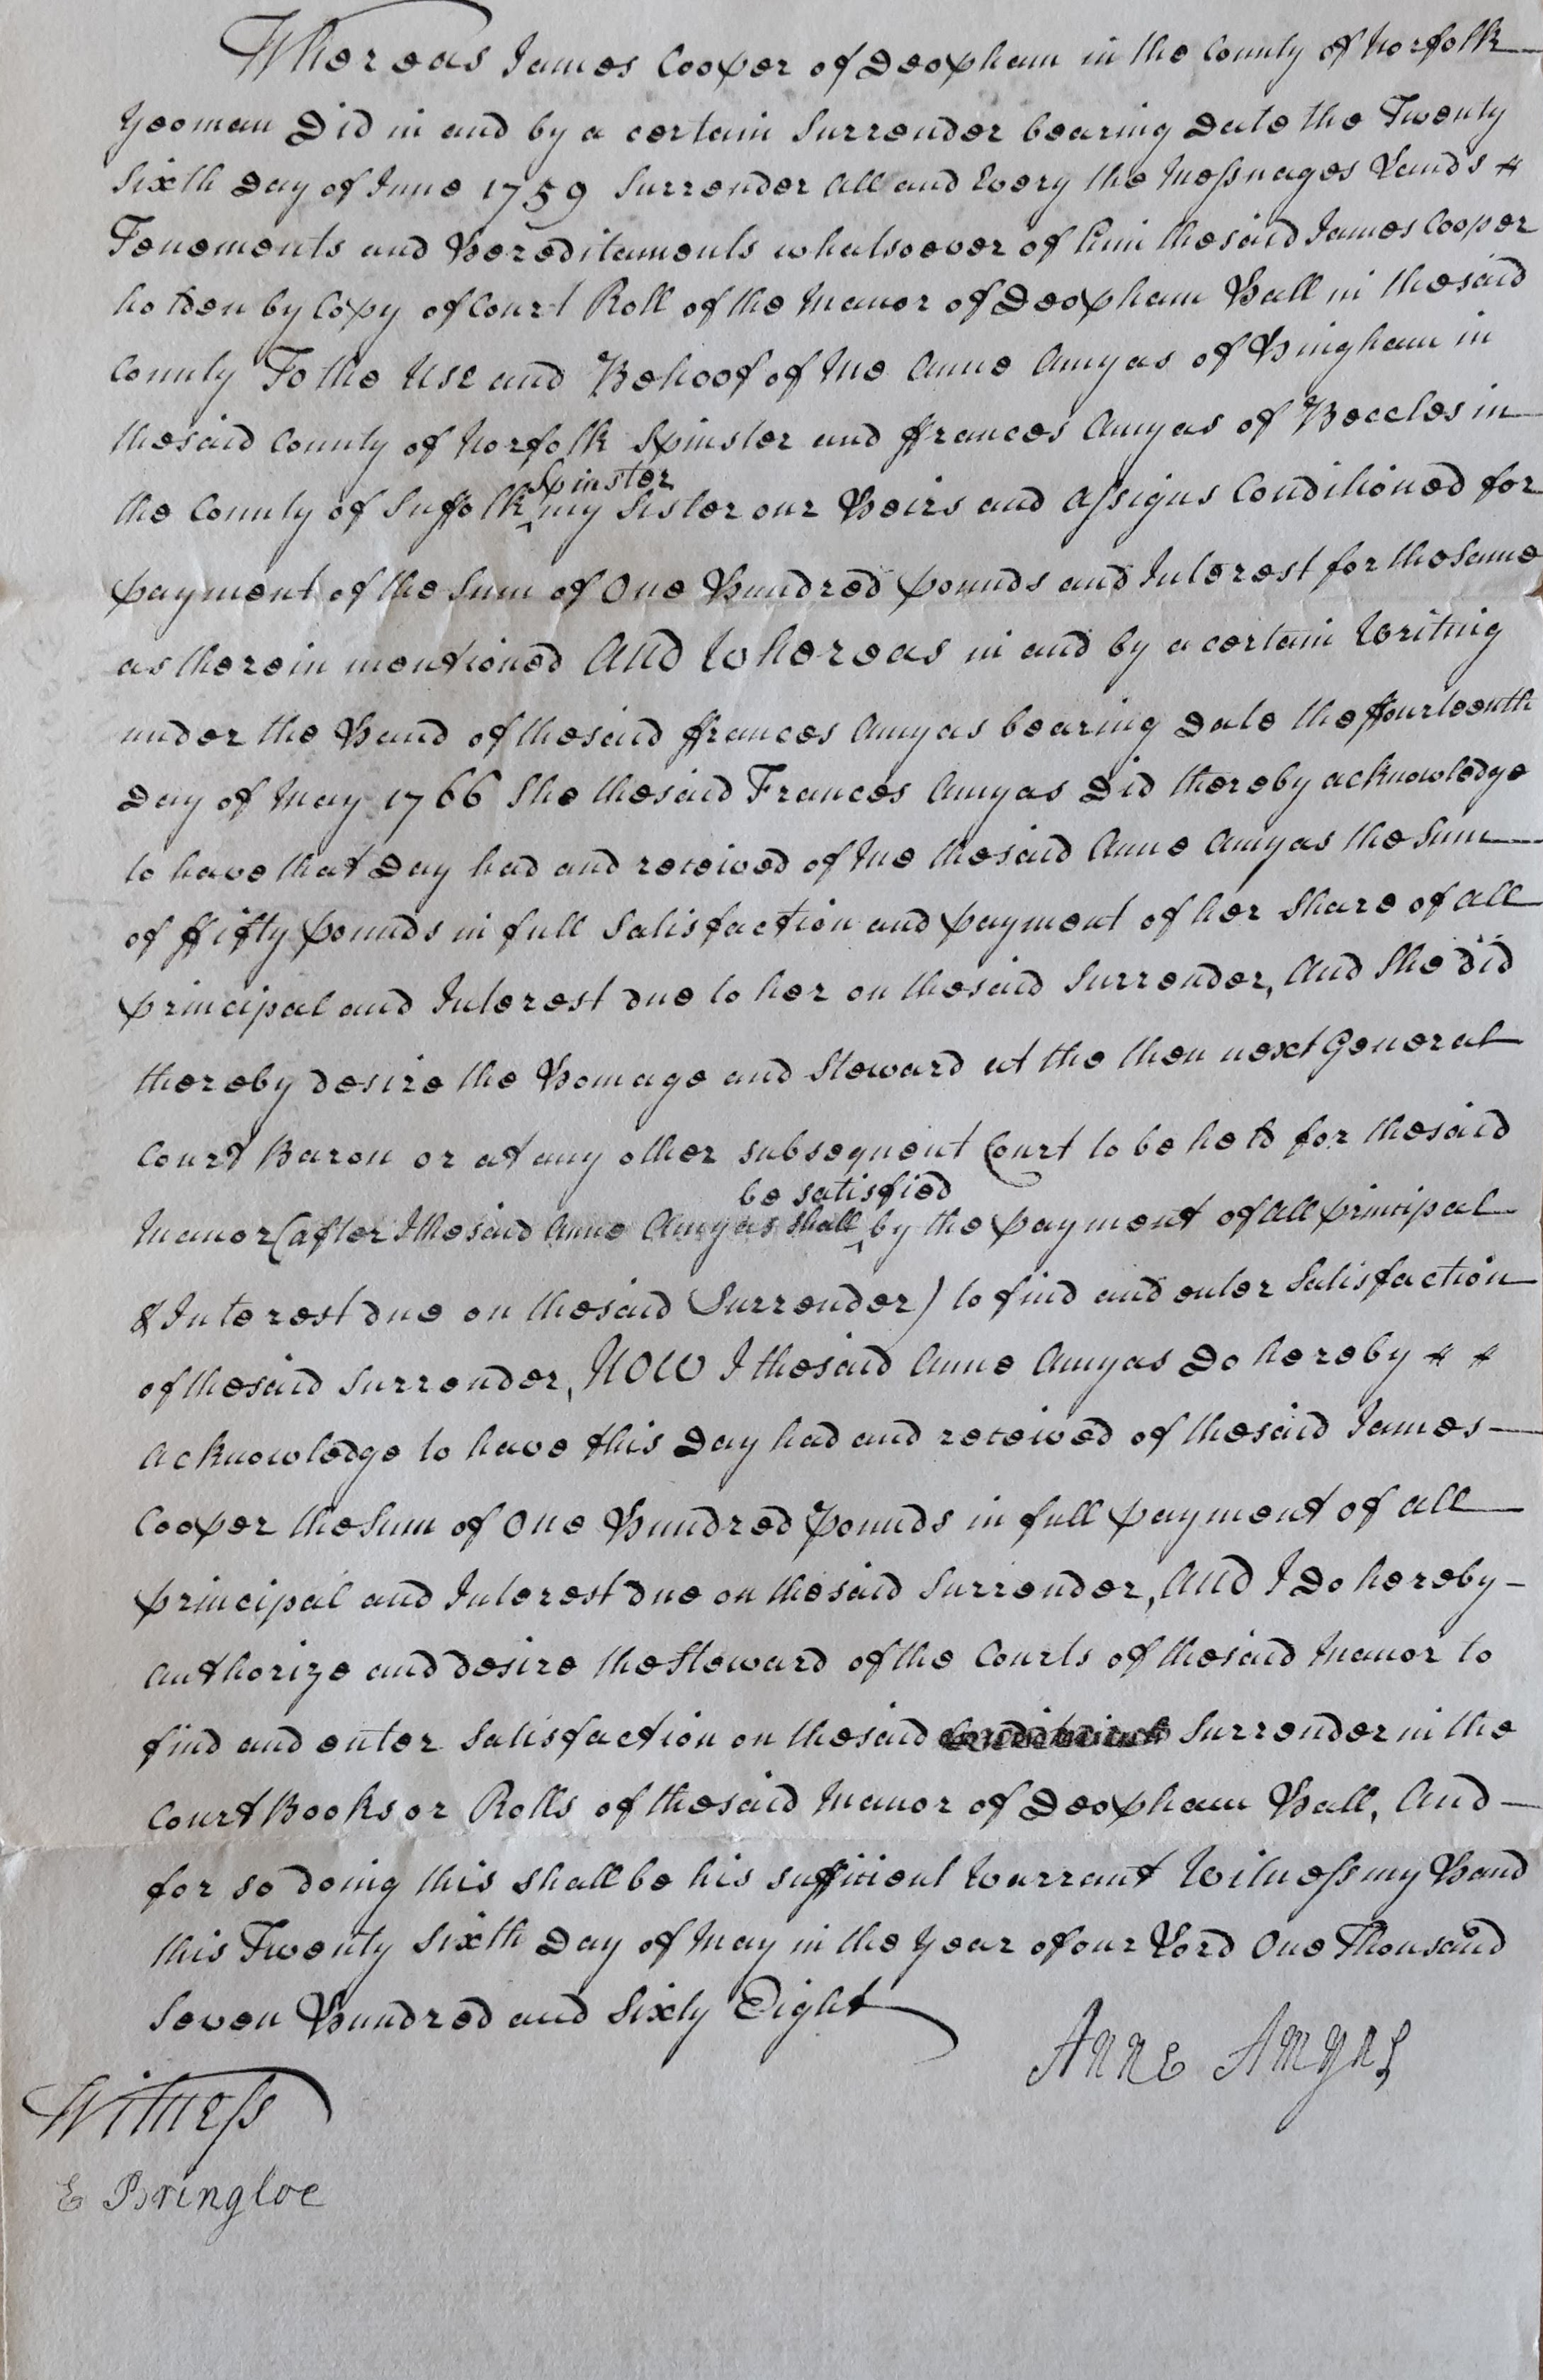 Whereas James Cooper of Deopham in the County of Norfolk
Yeoman Did in and by a certain Surrender bearing Date the Twenty
Sixth Day of June 1759 Surrender All and Every the Messuages Lands
Tenements and Hereditaments whatsoever of him the said James Cooper
holden by Copy of Court Roll of the Manor of Deopham Hall in the said
County To the Use and Behoof of me Anne Amyas of Hingham in
the said County of Norfolk Spinster and ffrances Amyas of Beccles in
Spinster
the County of Suffolk ^ my Sister our Heirs and Assigns Conditioned for
payment of the Sum of One Hundred pounds and Interest for the same
as therein mentioned And Whereas in and by a certain Writing
under the Hand of the said ffrances Amyas bearing Date the ffourteenth
Day of May 1766 She the said Frances Amyas Did thereby acknowledge
to have that Day had and received of me the said Anne Amyas the Sum
of ffifty pounds in full Satisfaction and payment of her Share of all
principal and Interest due to her on the said Surrender, And She did
thereby desire the Homage and Steward at the then next General
Court Baron or at any other subsequent Court to be held for the said
be satisfied
Manor (after I the said Anne Amyas shall ^ by the payment of all principal
& Interest due on the said Surrender) to find and enter Satisfaction
of the said Surrender, NOW I the said Anne Amyas Do hereby
Acknowledge to have this Day had and received of the said James
Cooper the Sum of One Hundred Pounds in full payment of all
principal and Interest due on the said Surrender, And I Do hereby
authorize and desire the Steward of the Courts of the said Manor to
find and enter Satisfaction on the said Surrender in the
Court Books or Rolls of the said Manor of Deopham Hall, And
for so doing this shall be his sufficient Warrant Witness my Hand
this Twenty Sixth Day of May in the Year of our Lord One Thousand
Seven Hundred and Sixty Eight
Anne Amyas
Witness
E Bringloe